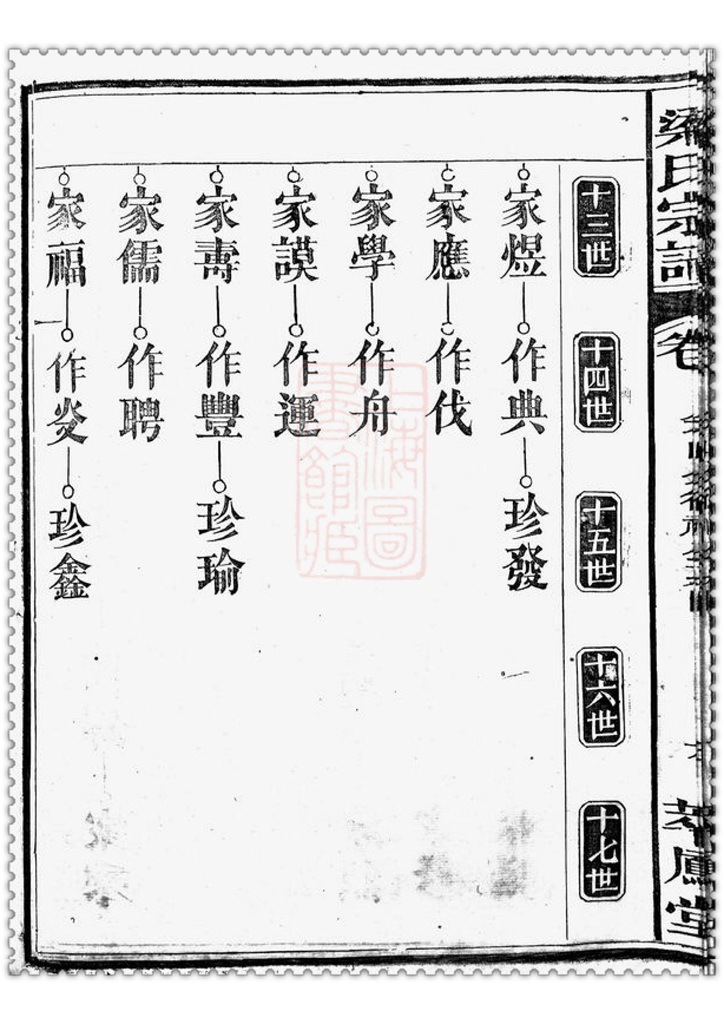 梁氏宗譜
卷
鳳堂
十三世
十四世
十五世
十六世
十七世
家煜 作典 珍發
家應 作伐
家學 作舟
家謨 作運
家壽 作豐 珍瑜
家儒 作聘
家福 作炎 珍鑫
上海圖書館